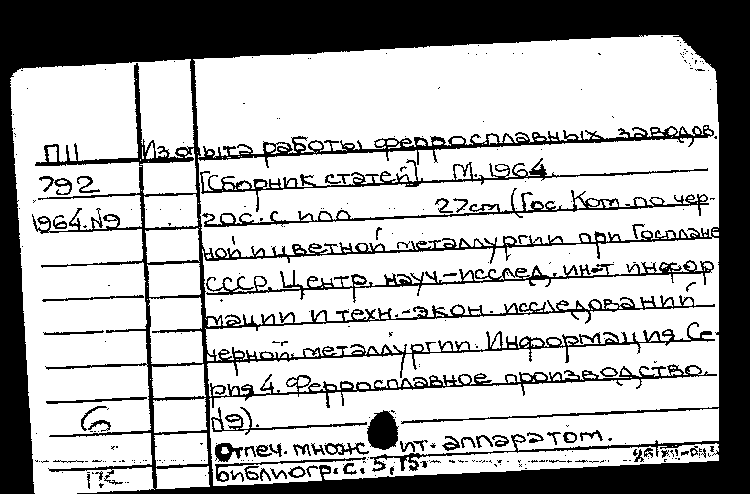 П11 Из опыта работы ферросплавных заводов.
792 [Сборник статей]. М., 1964.
1964.N9 20с. с илл 27см (Гос. Ком. по чер-
ной и цветной металлургии при Госплане
СССР. Центр. науч.-исслед. инст инфор
мации и техн.-экон. исследований
черной металлургии. Информация. Се-
рия 4. Ферросплавное производство.
6 N9).
Отпеч. множ ит. аппаратом.
ПК Библиогр. с. 5, 15.